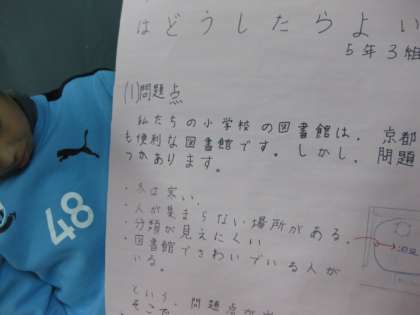 はどうしたらよい
5年3組
(1)問題点
私たちの小学校の図書館は、京都
も便利な図書館です。しかし、問題
つかあります。
・冬は寒い。
・人が集まらない場所がある。
・分類が見えにくい
・図書館でさわいでいる人が
いる。
という、問題点が
そこで
48